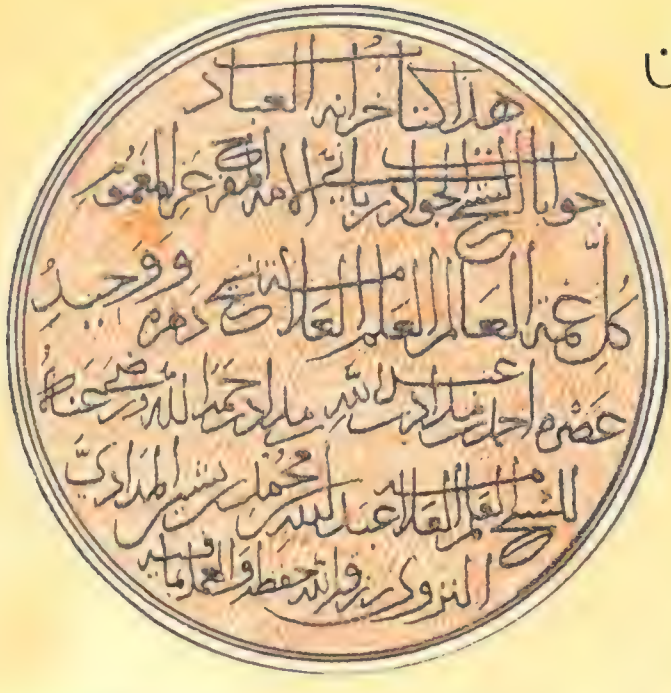 هذا كتاب خزانة العباد
جوابات الشيخ الجواد رباني الأمة المفرج عن المغموم
كل غمة العالم العلم العلامة شيخ دهره ووحيد
عصره أحمد بن مداد بن عبد الله بن مداد رحمه الله ورضي عنه
للشيخ العالم العلامة عبد الله بن محمد بن بشير المدادي
النزوي رزقه الله حفظه والعمل بما فيه
ن